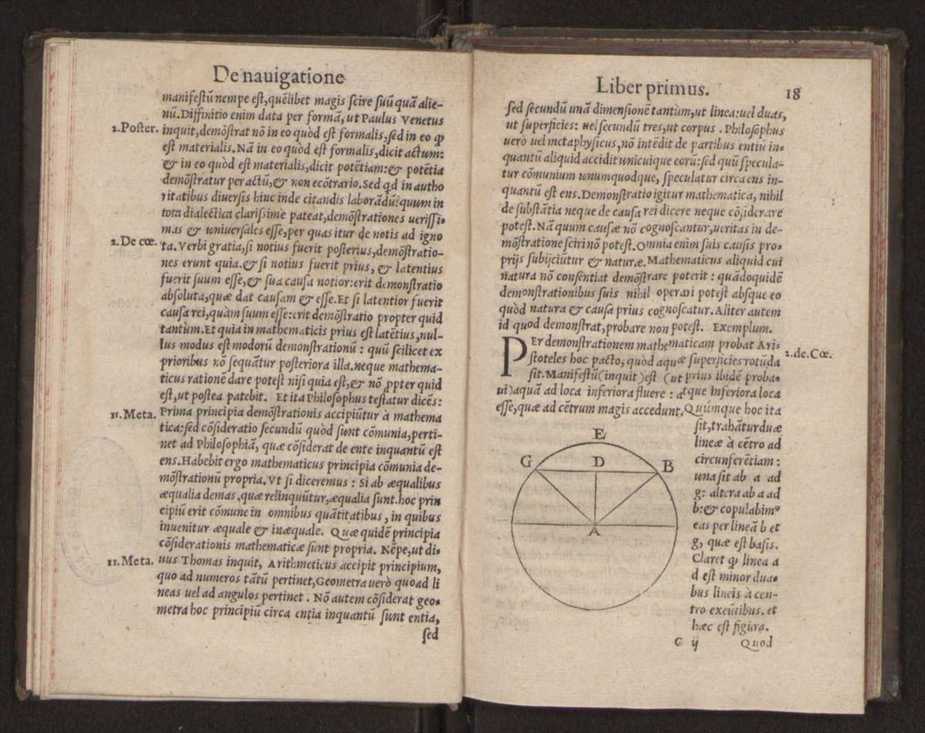 De nauigatione
manifestũ nempe est, quẽlibet magis scire suũ quã alie-
nũ. Diffinitio enim data per formã, ut Paulus Venetus
2. Poster. inquit, demõstrat nõ in eo quòd est formalis, sed in eo ꝙ
est materialis. Nã in eo quòd est formalis, dicit actum:
& in eo quòd est materialis, dicit potẽtiam: & potẽtia
demõstratur per actũ, & non ecõtrario. Sed qd in autho
ritatibus diuersis hinc inde citandis laborãdũ? quum in
tota dialectica clarissime pateat, demõstrationes uerissi-
mas & uniuersales esse, per quas itur de notis ad igno
2. De cœ. ta. Verbi gratia, si notius fuerit posterius, demõstratio-
nes erunt quia. & si notius fuerit prius, & latentius
fuerit suum esse, & sua causa notior: erit demonstratio
absoluta, quæ dat causam & esse. Et si latentior fuerit
causa rei, quàm suum esse: erit demõstratio propter quid
tantùm. Et quia in mathematicis prius est latẽtius, nul-
lus modus est modorũ demonstrationũ: quũ scilicet ex
prioribus nõ sequãtur posteriora illa. neque mathema-
ticus rationẽ dare potest nisi quia est, & nõ ꝓpter quid
est, ut postea patebit. Et ita Philosophus testatur dicẽs:
11. Meta. Prima principia demõstrationis accipiũtur à mathema
tica: sed cõsideratio secundũ quòd sunt cõmunia, perti-
net ad Philosophiã, quæ cõsiderat de ente inquantũ est
ens. Habebit ergo mathematicus principia cõmunia de-
mõstrationũ propria. Vt si diceremus: Si ab æqualibus
æqualia demas, quæ relinquũtur, æqualia sunt. hoc prin
cipiũ erit cõmune in omnibus quãtitatibus, in quibus
inuenitur æquale & inæquale. Quæ quidẽ principia
cõsiderationis mathematicæ sunt propria. Nẽpe, ut di-
11. Meta. uus Thomas inquit, Arithmeticus accipit principium,
quo ad numeros tãtũ pertinet, Geometra uerò quoad li
neas uel ad angulos pertinet. Nõ autem cõsiderat geo-
metra hoc principiũ circa entia inquantũ sunt entia,
sed
Liber primus. 18
sed secundũ unã dimensionẽ tantùm, ut linea: uel duas,
ut superficies: uel secundũ tres, ut corpus. Philosophus
uerò uel metaphysicus, nõ intẽdit de partibus entiũ in-
quantũ aliquid accidit unicuique eorũ: sed quũ specula-
tur cõmunium unumquodque, speculatur circa ens in-
quantũ est ens. Demonstratio igitur mathematica, nihil
de substãtia neque de causa rei dicere neque cõsiderare
potest. Nã quum causæ nõ cognoscantur, ueritas in de-
mõstratione sciri nõ potest. Omnia enim suis causis pro-
prijs subijciũtur & naturæ. Mathematicus aliquid cui
natura nõ consentiat demõstrare poterit: quãdoquidẽ
demonstrationibus suis nihil operari potest absque eo
quòd natura & causa prius cognoscatur. Aliter autem
id quod demonstrat, probare non potest. Exemplum.
PEr demonstrationem mathematicam probat Aris
stoteles hoc pacto, quòd aquæ superficies rotũda 2. de. Cœ.
sit. Manifestũ (inquit) est (ut prius ibidẽ proba-
ui) aquã ad loca inferiora fluere: atque inferiora loca
esse, quæ ad cẽtrum magis accedunt. Quũmque hoc ita
sit, trahãtur duæ
lineæ à cẽtro ad
circunferẽtiam:
una sit ab a ad
g: altera ab a ad
b: & copulabimꝰ
eas per lineã b et
g, quæ est basis.
Claret ꝙ linea a
d est minor dua-
bus lineis à cen-
tro exeũtibus. et
hæc est figura.
E
G D B
A
C ij Quod